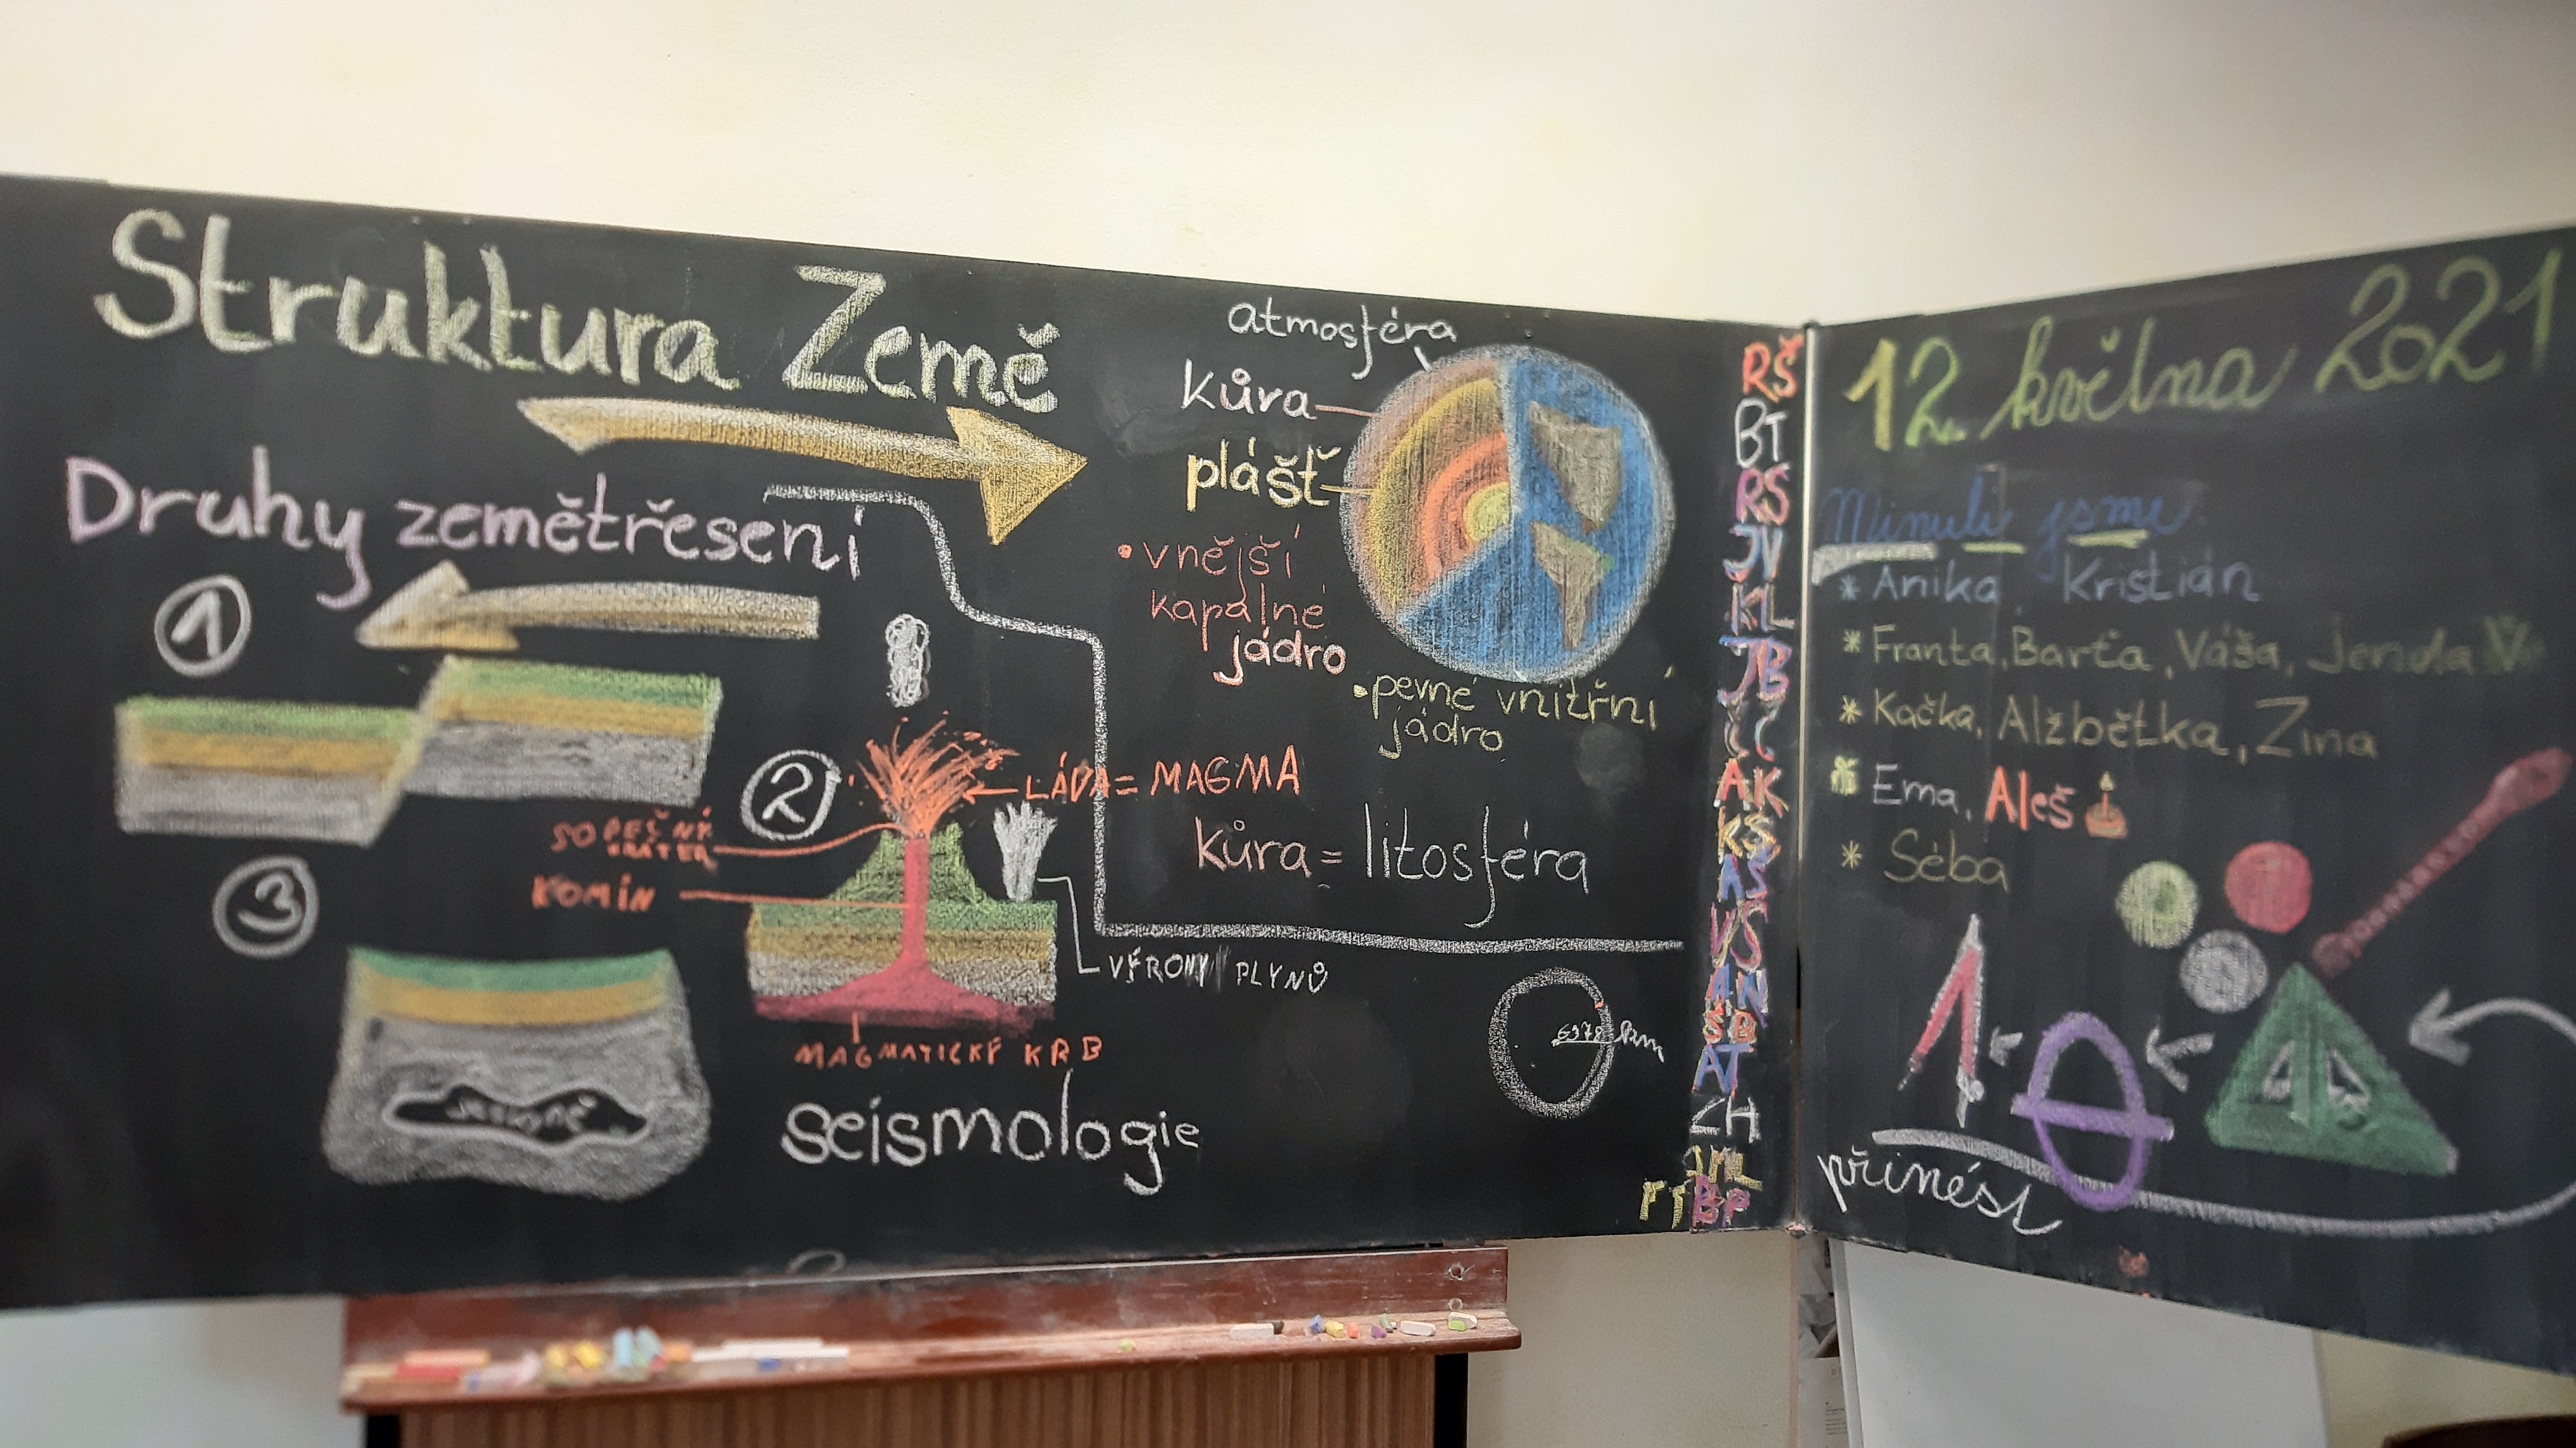 Struktura Země
Druhy zemětřesení
1
2
3
SOPEČNÝ
KRÁTER
KOMÍN
LÁVA = MAGMA
VÝRONY PLYNŮ
MAGMATICKÝ KRB
seismologie
atmosféra
kůra
plášť
• vnější
kapalné
jádro
• pevné vnitřní
jádro
kůra = litosféra
6378 km
RŠ
BT
RS
JV
KL
JB
AK
KŠ
AS
VŠ
AN
ŠB
AT
ZH
BP
12. května 2021
Minuli jsme
* Anika, Kristián
* Franta, Barťa, Váša, Jenda
* Kačka, Alžbětka, Zina
Ema, Aleš
* Séba
přinést